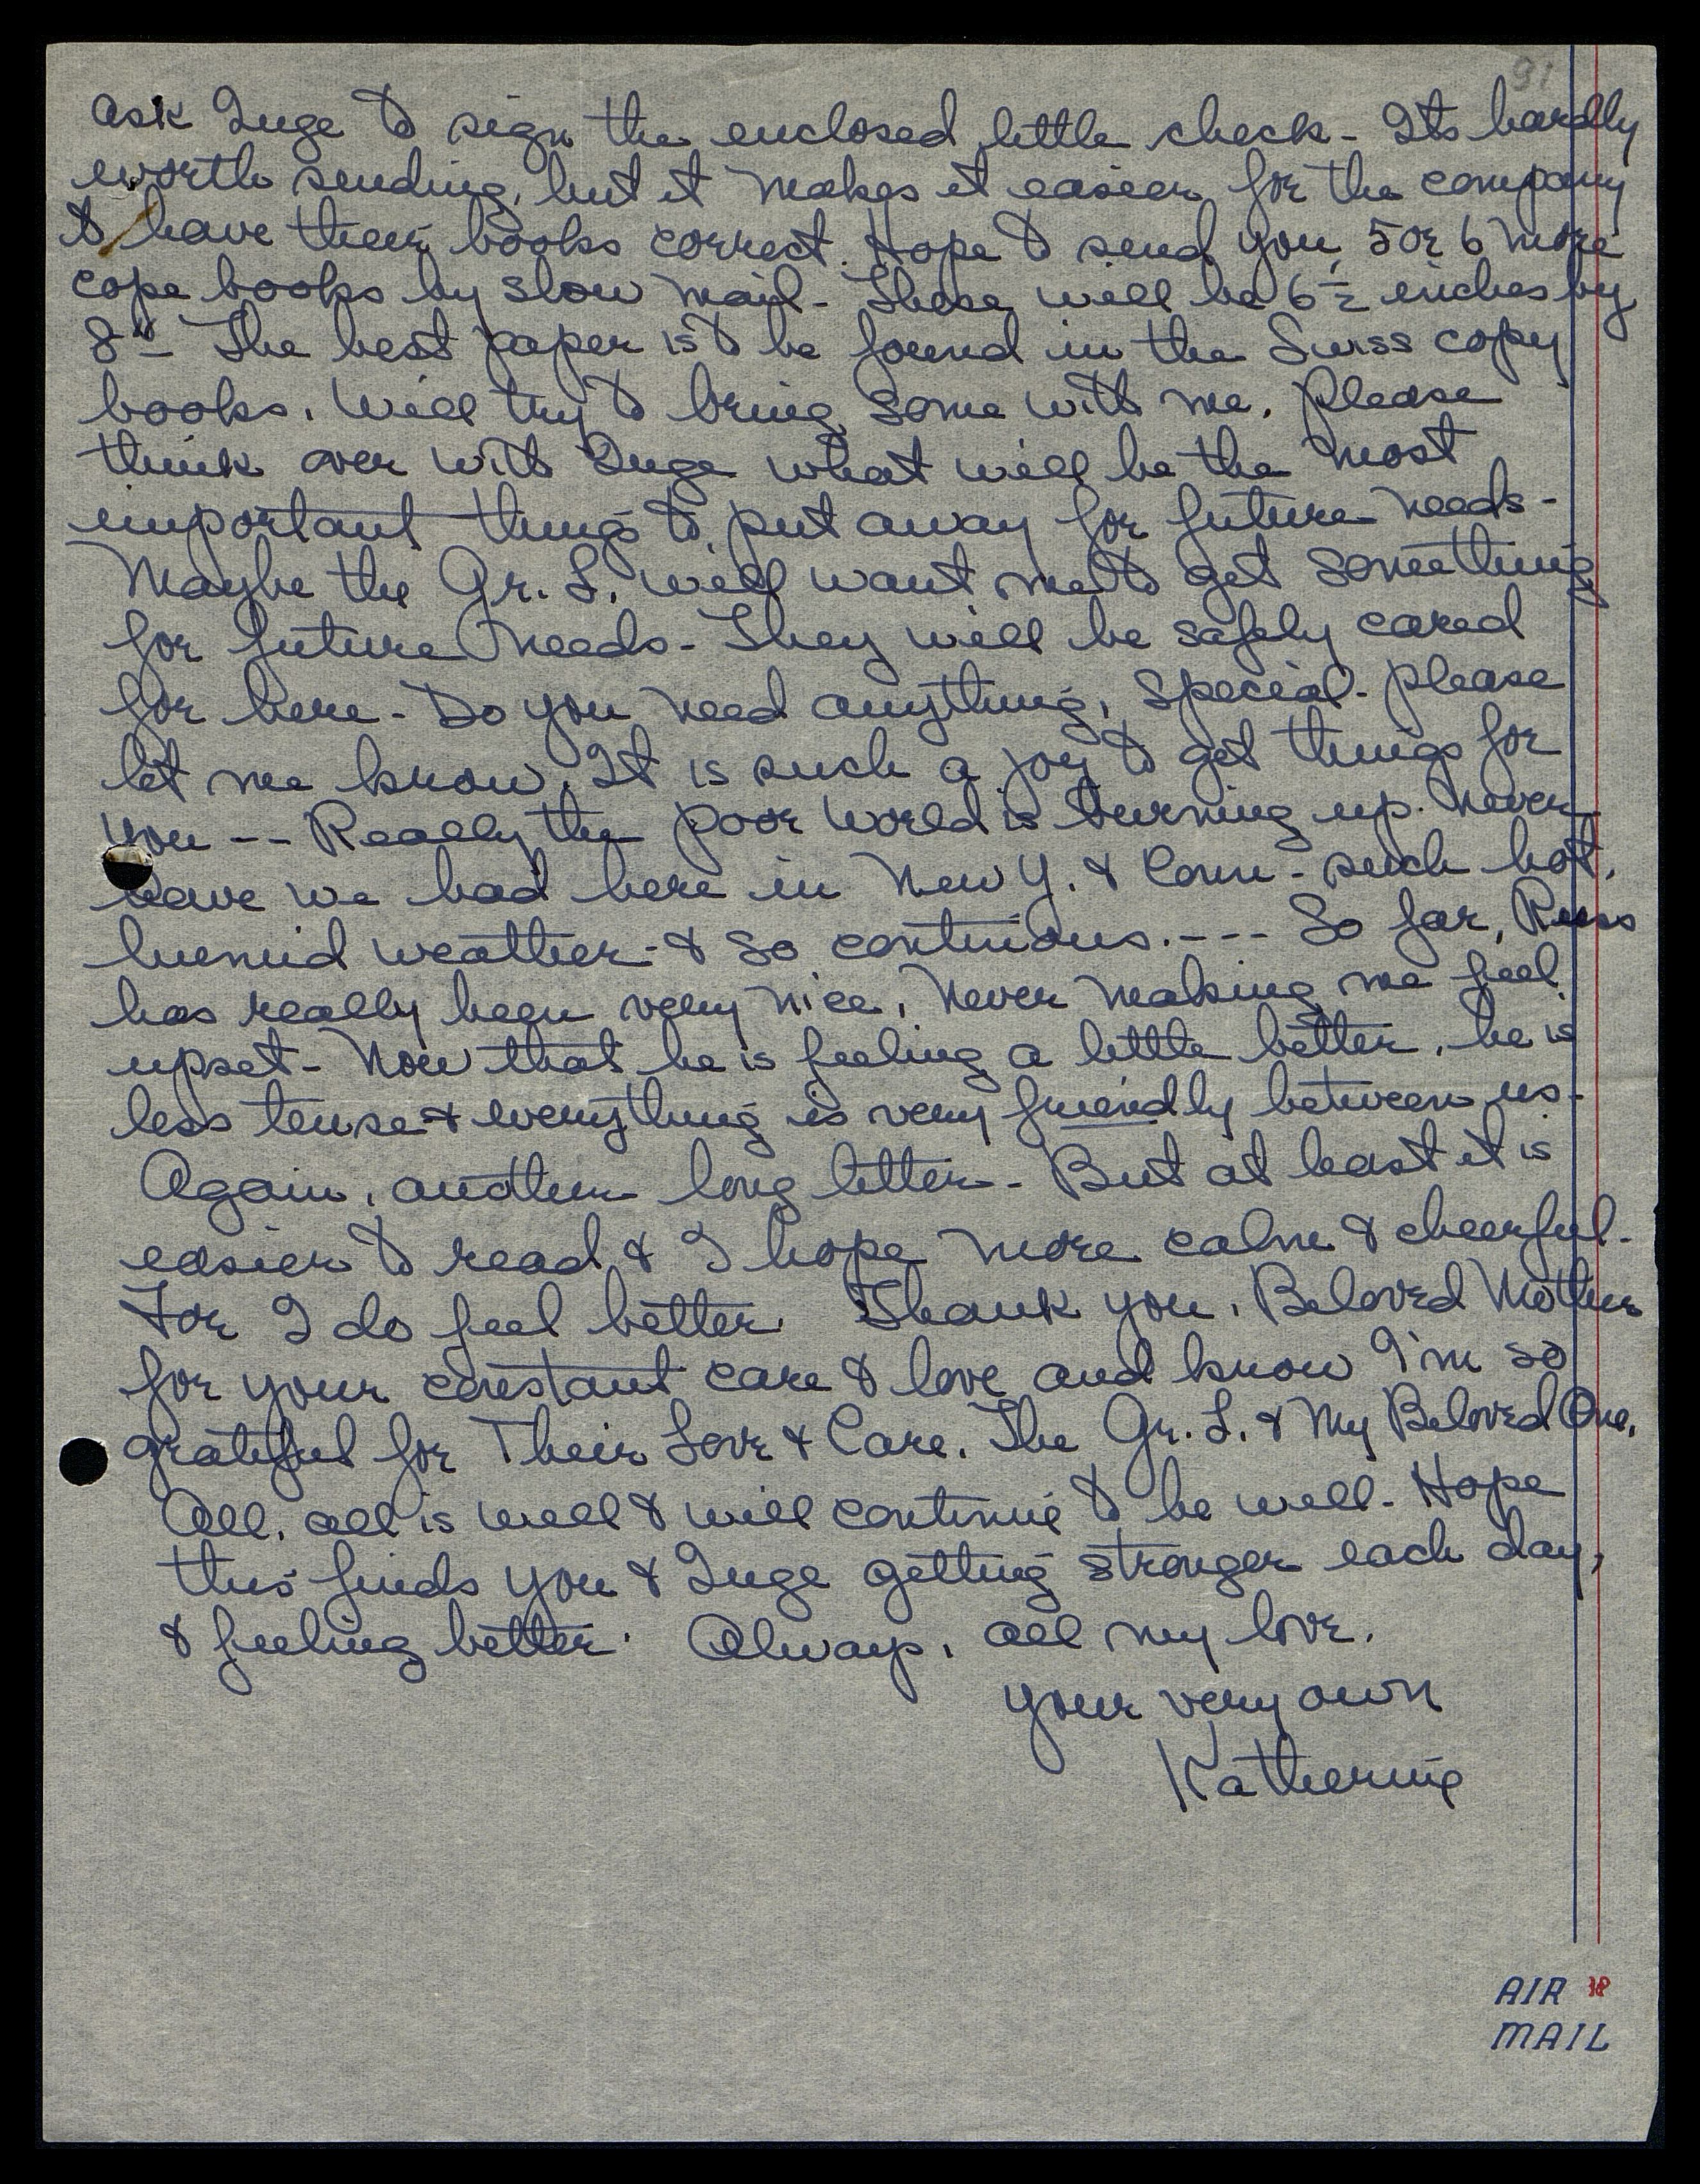 91
ask Inge to sign the enclosed little check - Its hardly
worth sending, but it makes it easier for the company
to have their books correct. Hope to send you 5 or 6 more
cope books by slow mail - These will be 6½ inches by
8" - The best paper is to be found in the Swiss copy
books. Will try to bring some with me. Please
think over with Inge what will be the most
important things to put away for future needs -
Maybe the Gr. L. will want me to get something
for future needs - They will be safely cared
for here - Do you need anything, special - please
let me know. It is such a joy to get things for
you -- Really the poor world is burning up. Never
have we had here in New Y. & Conn - such hot,
humid weather - & so continous. --- So far, Russ
has really been very nice, never making me feel
upset - Now that he is feeling a little better, he is
less tense & everything is very friendly between us -
Again, another long letter - But at least it is
easier to read & I hope more calm & cheerful -
For I do feel better. Thank you, Beloved Mother
for your constant care & love and know I'm so
grateful for Their Love & Care. The Gr. L. & My Beloved One.
All, all is well & will continue to be well - Hope
this finds you & Inge getting stronger each day,
& feeling better. Always, all my love.
your very own
Katherine
AIR
MAIL